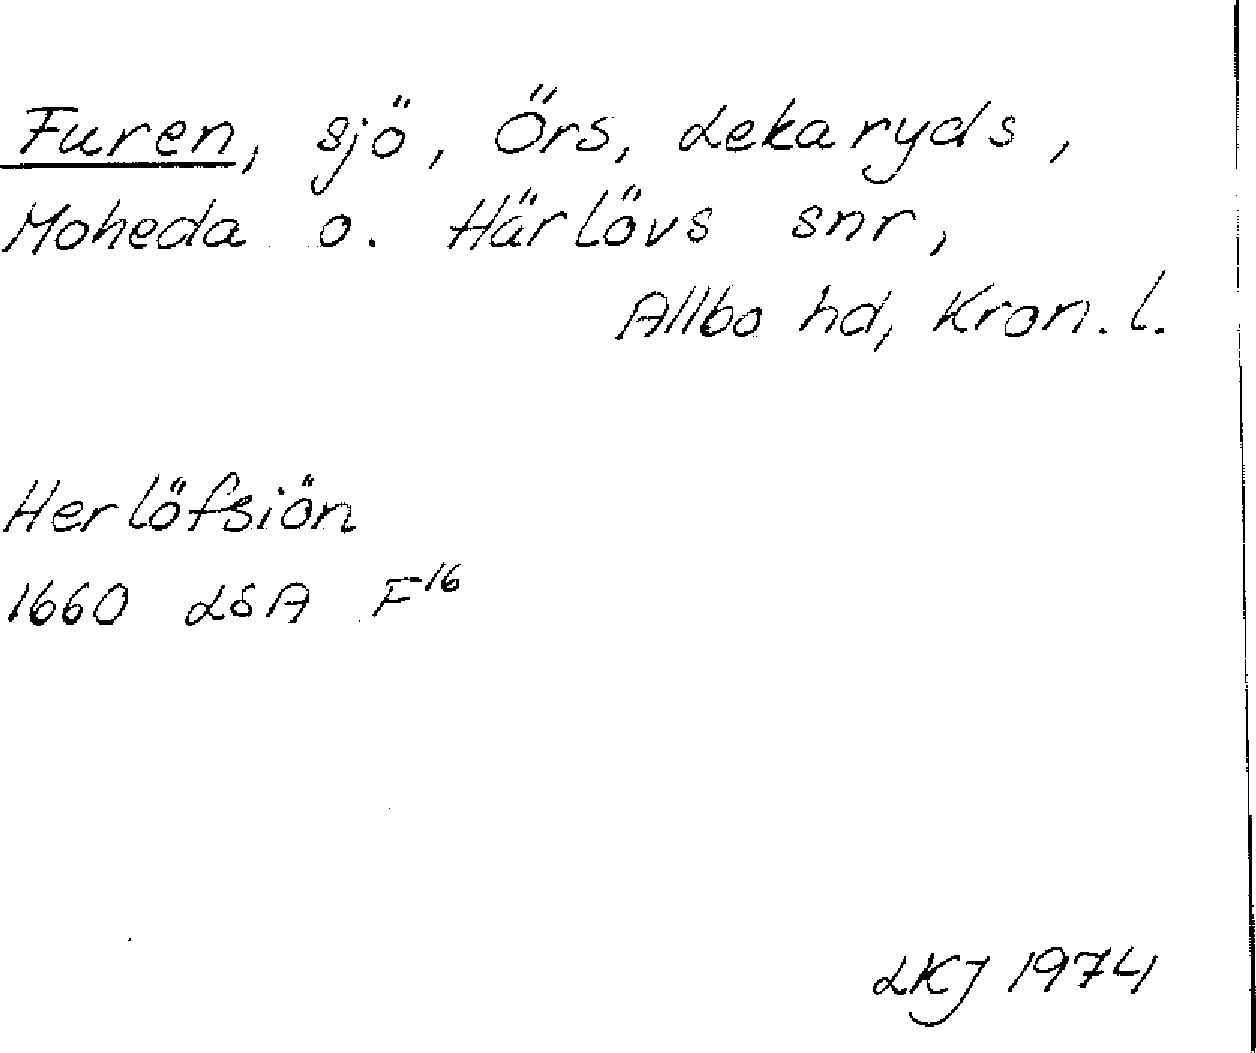 Furen, sjö, Örs, Lekaryds,
Moheda o. Härlövs snr,
Allbo hd, Kron. l.
Herlöfsiön
1660 LSA F¹⁶
LKJ 1974